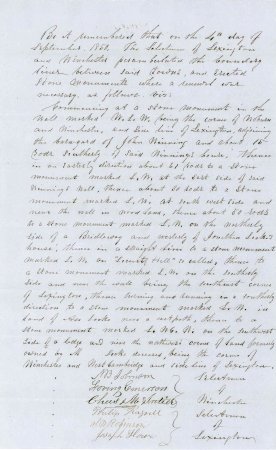 Be it remembered that on the 4th day of
September, 186 The Selectmen of Lexington
and Winchester perambulated the boundary
lines between said Towns, and erected
Stone Monuments where a renewal was
necessary, as follows. Viz:
Commencing at a stone monument in the
wall marked being the corner of Woburn
and Winchester, and side line of Lexington, adjoining
the land of John Winning and about 16
rods Northerly of said Winning's house, Thence
in an Easterly direction about 65 rods to a stone
monument marked L.W. at the East side of said
Winning's Wall, thence about 50 rods to a Stone
monument marked L.W. at South west side and
near the wall in wood land, thence about 60 rods
to a stone monument marked L.W. on the westerly
side of a Bridleway and westerly of Locke's
house, thence in a straight line to a stone monument
marked L.W. on "Hill" so called, thence to
a stone monument marked L.W. on the southerly
side and near the wall being the southeast corner
of Lexington, thence turning and running in a southerly
direction to a stone monument marked L.W. in
land of Locke near a cart path, thence to a
stone monument marked L.W.C.W. on the southwest
side of a ledge and near the northwest corner of land formerly
owned by Locke deceased, being the corner of
Winchester and West Cambridge and side line of Lexington.
Johnson Selectmen
Loring Emerson of
Chas. Winchester
Philip Russell Selectmen
Robinson of
Joseph Lexington